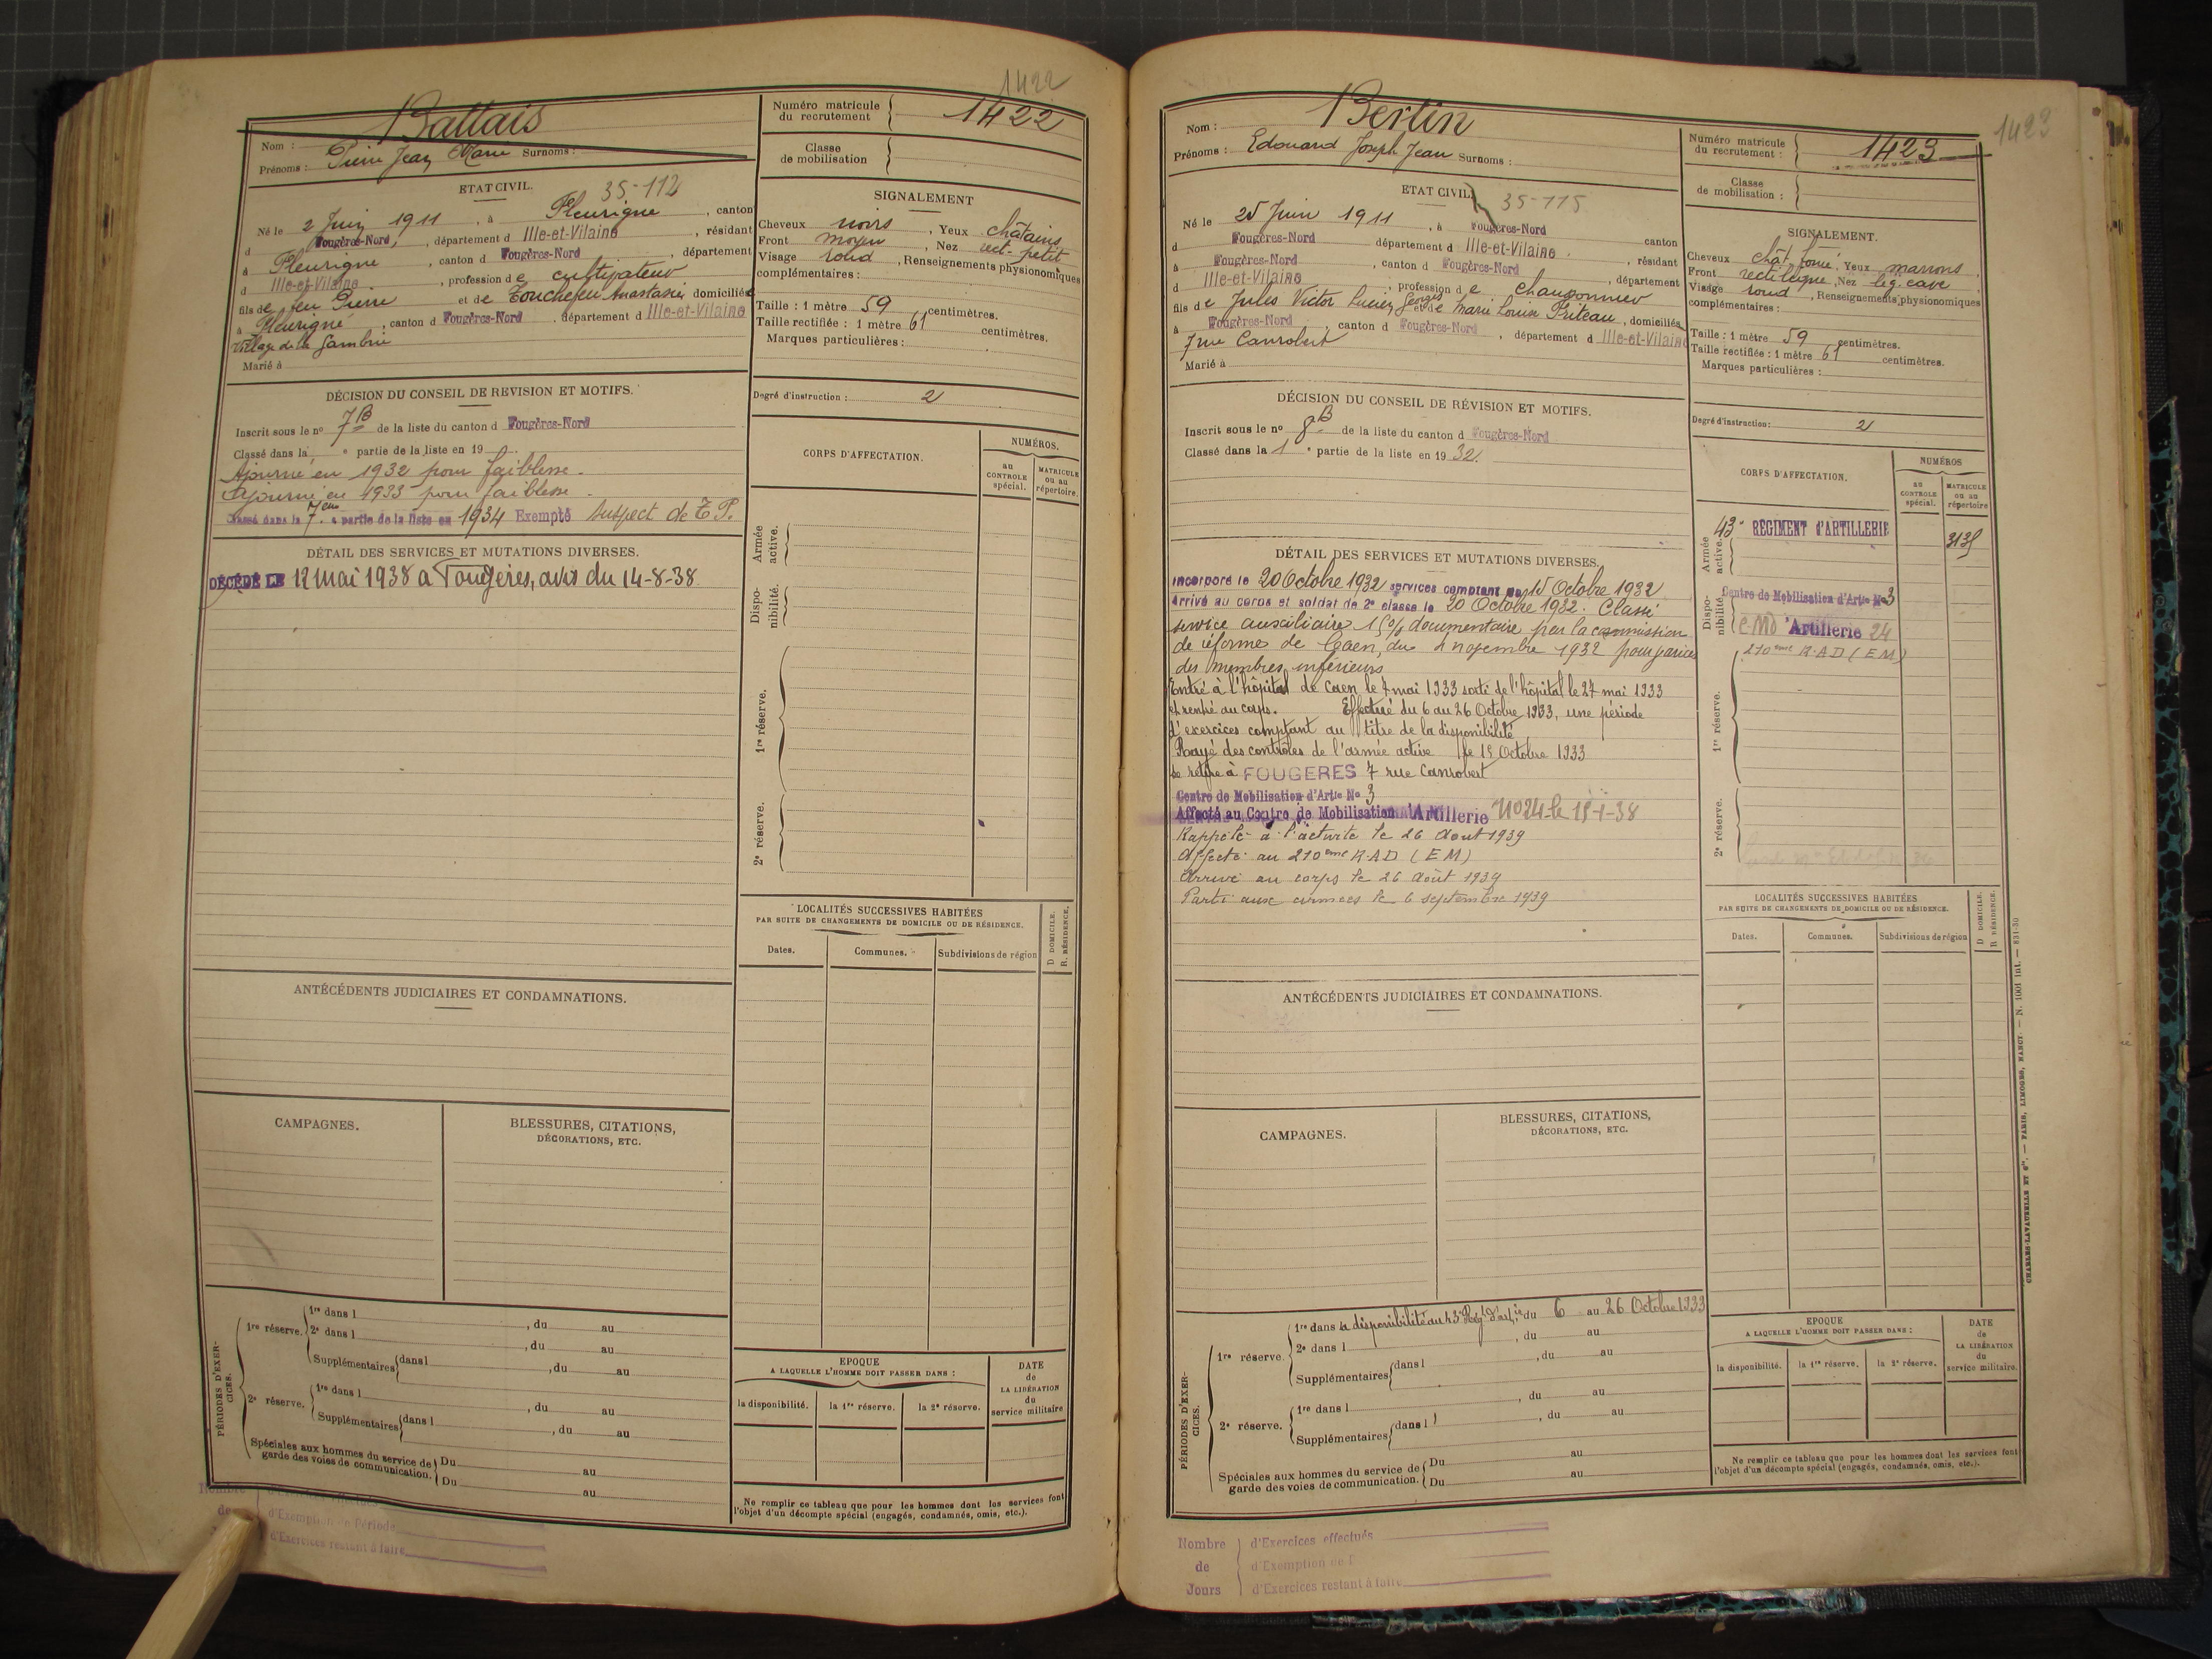 1422
Nom : Battais
Prénoms : Pierre Jean Marie Surnoms :
Numéro matricule du recrutement { 1422
Classe de mobilisation {
ETAT CIVIL. 35-112
Né le 2 Juin 1911, à Fleurigné, canton
d Fougères-Nord, département d Ille-et-Vilaine, résidant
à Fleurigné, canton d Fougères-Nord, département
d Ille-et-Vilaine, profession de cultivateur
fils de feu Pierre et de Touchefeu Anastasie, domiciliés
à Fleurigné, canton d Fougères-Nord, département d Ille-et-Vilaine
Village de la Jambrie
Marié à
SIGNALEMENT
Cheveux noirs, Yeux châtains
Front moyen, Nez rect. petit
Visage rond, Renseignements physionomiques
complémentaires :
Taille : 1 mètre 59 centimètres.
Taille rectifiée : 1 mètre 61 centimètres.
Marques particulières :
DÉCISION DU CONSEIL DE REVISION ET MOTIFS.
Inscrit sous le no 7 B de la liste du canton d Fougères-Nord
Classé dans la e partie de la liste en 19
Ajourné en 1932 pour faiblesse.
Ajourné en 1933 pour faiblesse.
Classé dans la 7ème partie de la liste en 1934 Exempté suspect de T.P.
Degré d'instruction : 2
CORPS D'AFFECTATION.
NUMÉROS.
au CONTROLE spécial.
MATRICULE ou au répertoire.
Armée active.
Disponibilité.
1re réserve.
2e réserve.
DÉTAIL DES SERVICES ET MUTATIONS DIVERSES.
DÉCÉDÉ LE 12 mai 1938 à Fougères, avis du 14-8-38.
LOCALITÉS SUCCESSIVES HABITÉES
PAR SUITE DE CHANGEMENTS DE DOMICILE OU DE RÉSIDENCE.
D. DOMICILE.
R. RÉSIDENCE.
Dates. Communes. Subdivisions de région
ANTÉCÉDENTS JUDICIAIRES ET CONDAMNATIONS.
CAMPAGNES.
BLESSURES, CITATIONS,
DÉCORATIONS, ETC.
PÉRIODES D'EXERCICES.
1re réserve. 1re dans l , du au
2e dans l , du au
Supplémentaires dans l , du au
2e réserve. 1re dans l , du au
Supplémentaires dans l , du au
Spéciales aux hommes du service de Du au
garde des voies de communication. Du au
EPOQUE
A LAQUELLE L'HOMME DOIT PASSER DANS :
la disponibilité. la 1re réserve. la 2e réserve.
DATE
de
LA LIBÉRATION
du
service militaire
Ne remplir ce tableau que pour les hommes dont les services font
l'objet d'un décompte spécial (engagés, condamnés, omis, etc.).
Nombre
de
d'Exemption de Période
d'Exercices restant à faire
1423
Nom : Bertin
Prénoms : Edouard Joseph Jean Surnoms :
Numéro matricule du recrutement : { 1423
Classe de mobilisation : {
ETAT CIVIL. 35-115
Né le 25 Juin 1911, à Fougères-Nord
d Fougères-Nord département d Ille-et-Vilaine canton
à Fougères-Nord, canton d Fougères-Nord, résidant
d Ille-et-Vilaine, profession de , département
fils de Jules Victor Lucien Georges et de Marie Louise Priteau, domiciliés
à Fougères-Nord, canton d Fougères-Nord, département d Ille-et-Vilaine
7 rue Canrobert
Marié à
SIGNALEMENT.
Cheveux chât. foncé, Yeux marrons
Front rectiligne, Nez lég. cave
Visage rond, Renseignements physionomiques
complémentaires :
Taille : 1 mètre 59 centimètres.
Taille rectifiée : 1 mètre 61 centimètres.
Marques particulières :
DÉCISION DU CONSEIL DE RÉVISION ET MOTIFS.
Inscrit sous le no 8 B de la liste du canton d Fougères-Nord
Classé dans la 1 e partie de la liste en 19 32.
Degré d'instruction : 2
CORPS D'AFFECTATION.
NUMÉROS
au CONTROLE spécial.
MATRICULE ou au répertoire
Armée active. 43e RÉGIMENT d'ARTILLERIE 3135
Disponibilité. Centre de Mobilisation d'Artie No 3
CMO d'Artillerie 24
1re réserve. 210ème R.A.D (EM)
2e réserve.
DÉTAIL DES SERVICES ET MUTATIONS DIVERSES.
Incorporé le 20 Octobre 1932 services comptant du 15 Octobre 1932
Arrivé au corps et soldat de 2e classe le 20 Octobre 1932. Classé
service auxiliaire 15% documentaire par la commission
de réforme de Caen, du 4 novembre 1932 pour varices
des membres inférieurs
Entré à l'hôpital de Caen le 7 mai 1933 sorti de l'hôpital le 27 mai 1933
et rentré au corps. Effectué du 6 au 26 Octobre 1933, une période
d'exercices comptant au titre de la disponibilité
Rayé des contrôles de l'armée active le 15 Octobre 1933
se retire à FOUGERES 7 rue Canrobert
Centre de Mobilisation d'Artie No 3
Affecté au Centre de Mobilisation d'Artillerie No 24 le 15-1-38
Rappelé à l'activité le 26 Aout 1939
Affecté au 210ème R.A.D (EM)
Arrivé au corps le 26 août 1939
Parti aux armées le 6 septembre 1939
LOCALITÉS SUCCESSIVES HABITÉES
PAR SUITE DE CHANGEMENTS DE DOMICILE OU DE RÉSIDENCE.
D DOMICILE.
R RÉSIDENCE.
Dates. Communes. Subdivisions de région
ANTÉCÉDENTS JUDICIAIRES ET CONDAMNATIONS.
CAMPAGNES.
BLESSURES, CITATIONS,
DÉCORATIONS, ETC.
PÉRIODES D'EXERCICES.
1re réserve. 1re dans la disponibilité au 43e Régt d'artie, du 6 au 26 Octobre 1933
2e dans l , du au
Supplémentaires dans l , du au
2e réserve. 1re dans l , du au
Supplémentaires dans l , du au
Spéciales aux hommes du service de Du au
garde des voies de communication. Du au
EPOQUE
A LAQUELLE L'HOMME DOIT PASSER DANS :
la disponibilité. la 1re réserve. la 2e réserve.
DATE
de
LA LIBÉRATION
du
service militaire.
Ne remplir ce tableau que pour les hommes dont les services font
l'objet d'un décompte spécial (engagés, condamnés, omis, etc.).
Nombre d'Exercices effectués
de d'Exemption de
Jours d'Exercices restant à faire
CHARLES-LAVAUZELLE ET Cie. — PARIS, LIMOGES, NANCY. — N. 1001 int. — 831-30